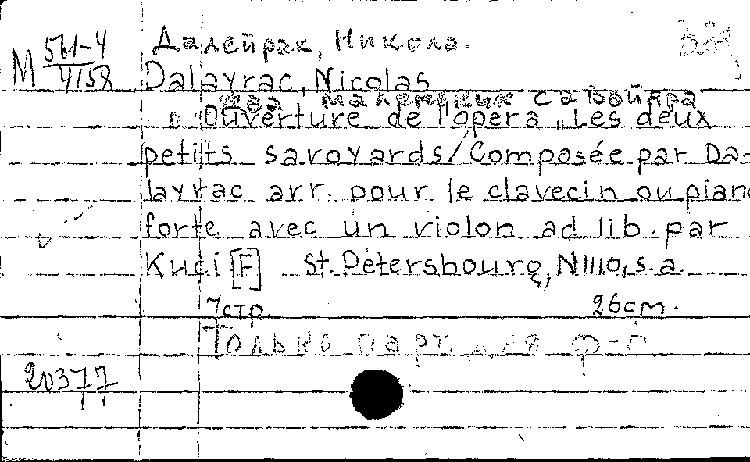 М 561-4/4158
Далейрак, Никола.
Dalayrac, Nicolas
Два маленьких савойяра
Ouverture de l'opera „Les deux
petits savoyards/Composée par Da-
layrac arr. pour le clavecin ou piano
forte avec un violon ad lib. par
Kuči [F] St. Pétersbourg, N 1110, s.a.
7стр. 26см.
Только парт. для ф-п
20377